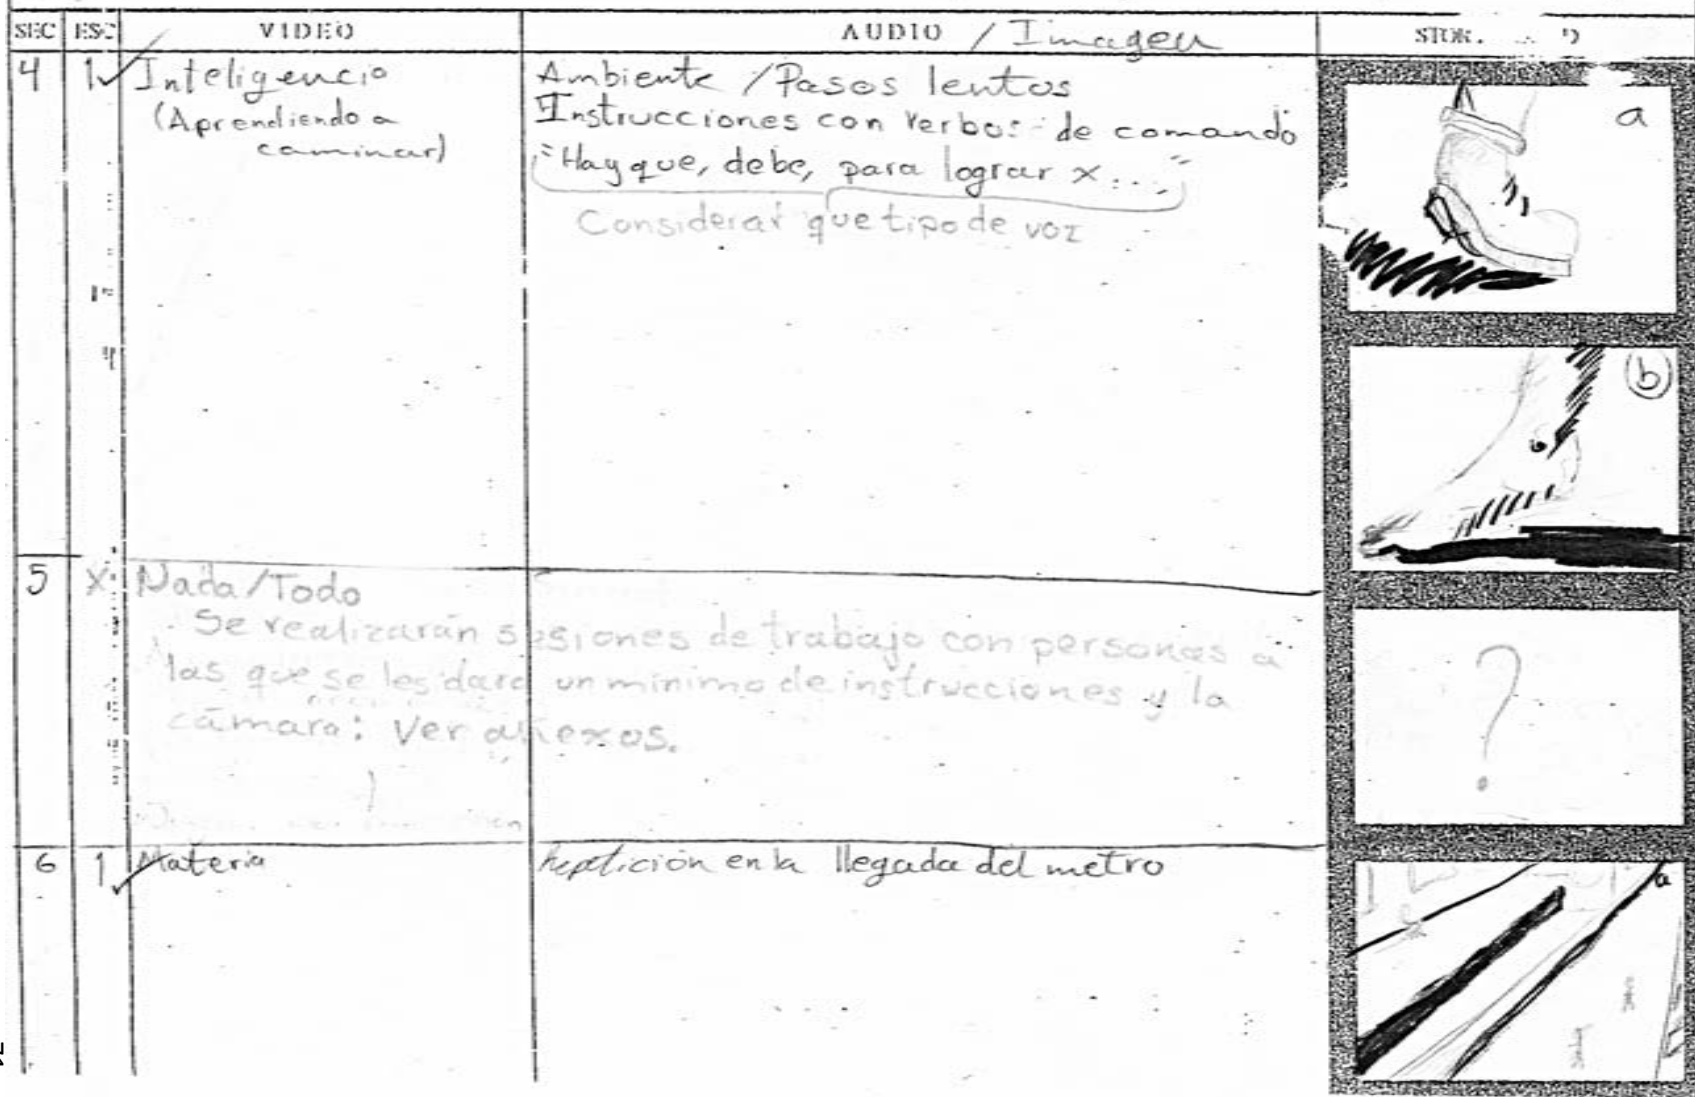 SEC ESC VIDEO AUDIO / Imagen
4 1 Inteligencia
(Aprendiendo a
caminar)
Ambiente / Pasos lentos
Instrucciones con verbos de comando
"Hay que, debe, para lograr x ..."
Considerar que tipo de voz
a
b
5 x Nada/Todo
Se realizarán sesiones de trabajo con personas a
las que se les dara un minimo de instrucciones y la
cámara: Ver anexos.
?
6 1 Materia
Repetición en la llegada del metro
a